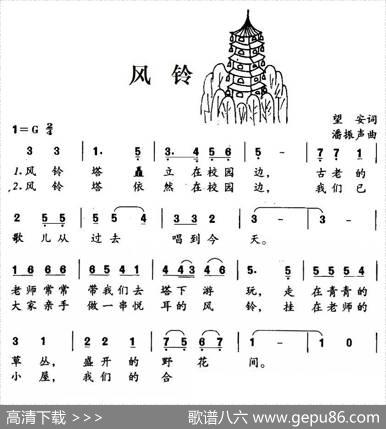 风铃
1=G 2/4
望安词
潘振声曲
3 3 | 1. 5 | 3. 4 5 6 | 5 - | 7 7 1 |
1.风铃 塔矗 立在校园 边, 古老的
2.风铃 塔依 然在校园 边, 我们已
2 5 5 | 5 5 4 | 3 3 2 | 3 - | 3 - |
歌儿从 过去 唱到今 天。
1 6 6 6 | 6 5 4 1 | 4 4 3 4 6 | 5. 5 | 5 5 5 4 |
老师常常 带我们去 塔下游 玩, 走在青青的
大家亲手 做一串悦 耳的风 铃, 挂在老师的
3 1 | 2 2 2 2 | 7 5 6 7 | 1 - | 1 0 |
草丛, 盛开的野花 间。
小屋, 我们的合
高清下载 >>> 歌谱八六 www.gepu86.com